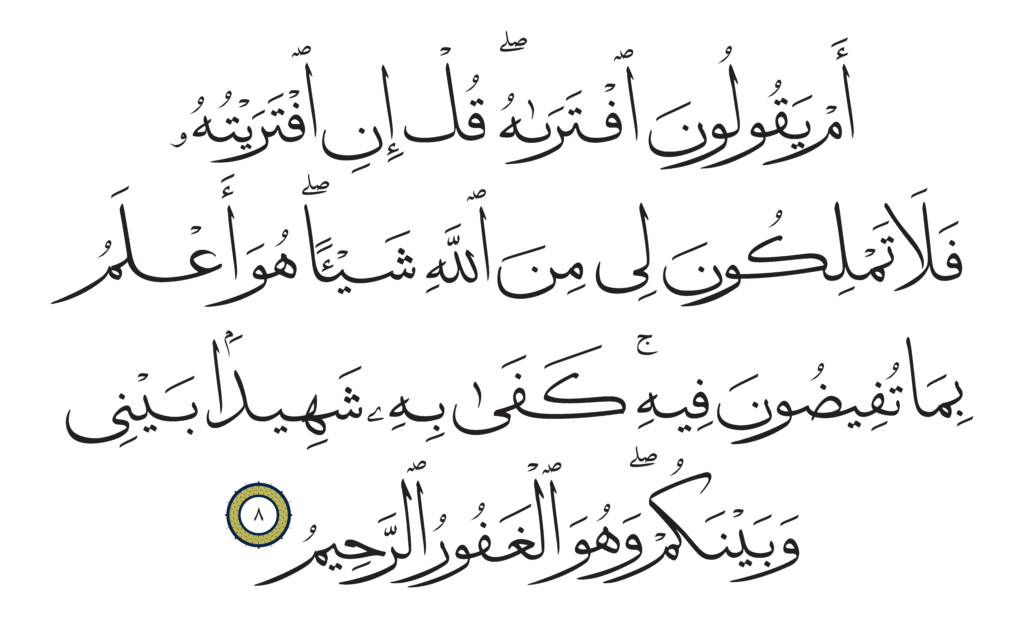 أَمْ يَقُولُونَ ٱفْتَرَىٰهُ ۖ قُلْ إِنِ ٱفْتَرَيْتُهُۥ
فَلَا تَمْلِكُونَ لِى مِنَ ٱللَّهِ شَيْـًٔا ۖ هُوَ أَعْلَمُ
بِمَا تُفِيضُونَ فِيهِ ۚ كَفَىٰ بِهِۦ شَهِيدًۢا بَيْنِى
وَبَيْنَكُمْ ۖ وَهُوَ ٱلْغَفُورُ ٱلرَّحِيمُ ٨